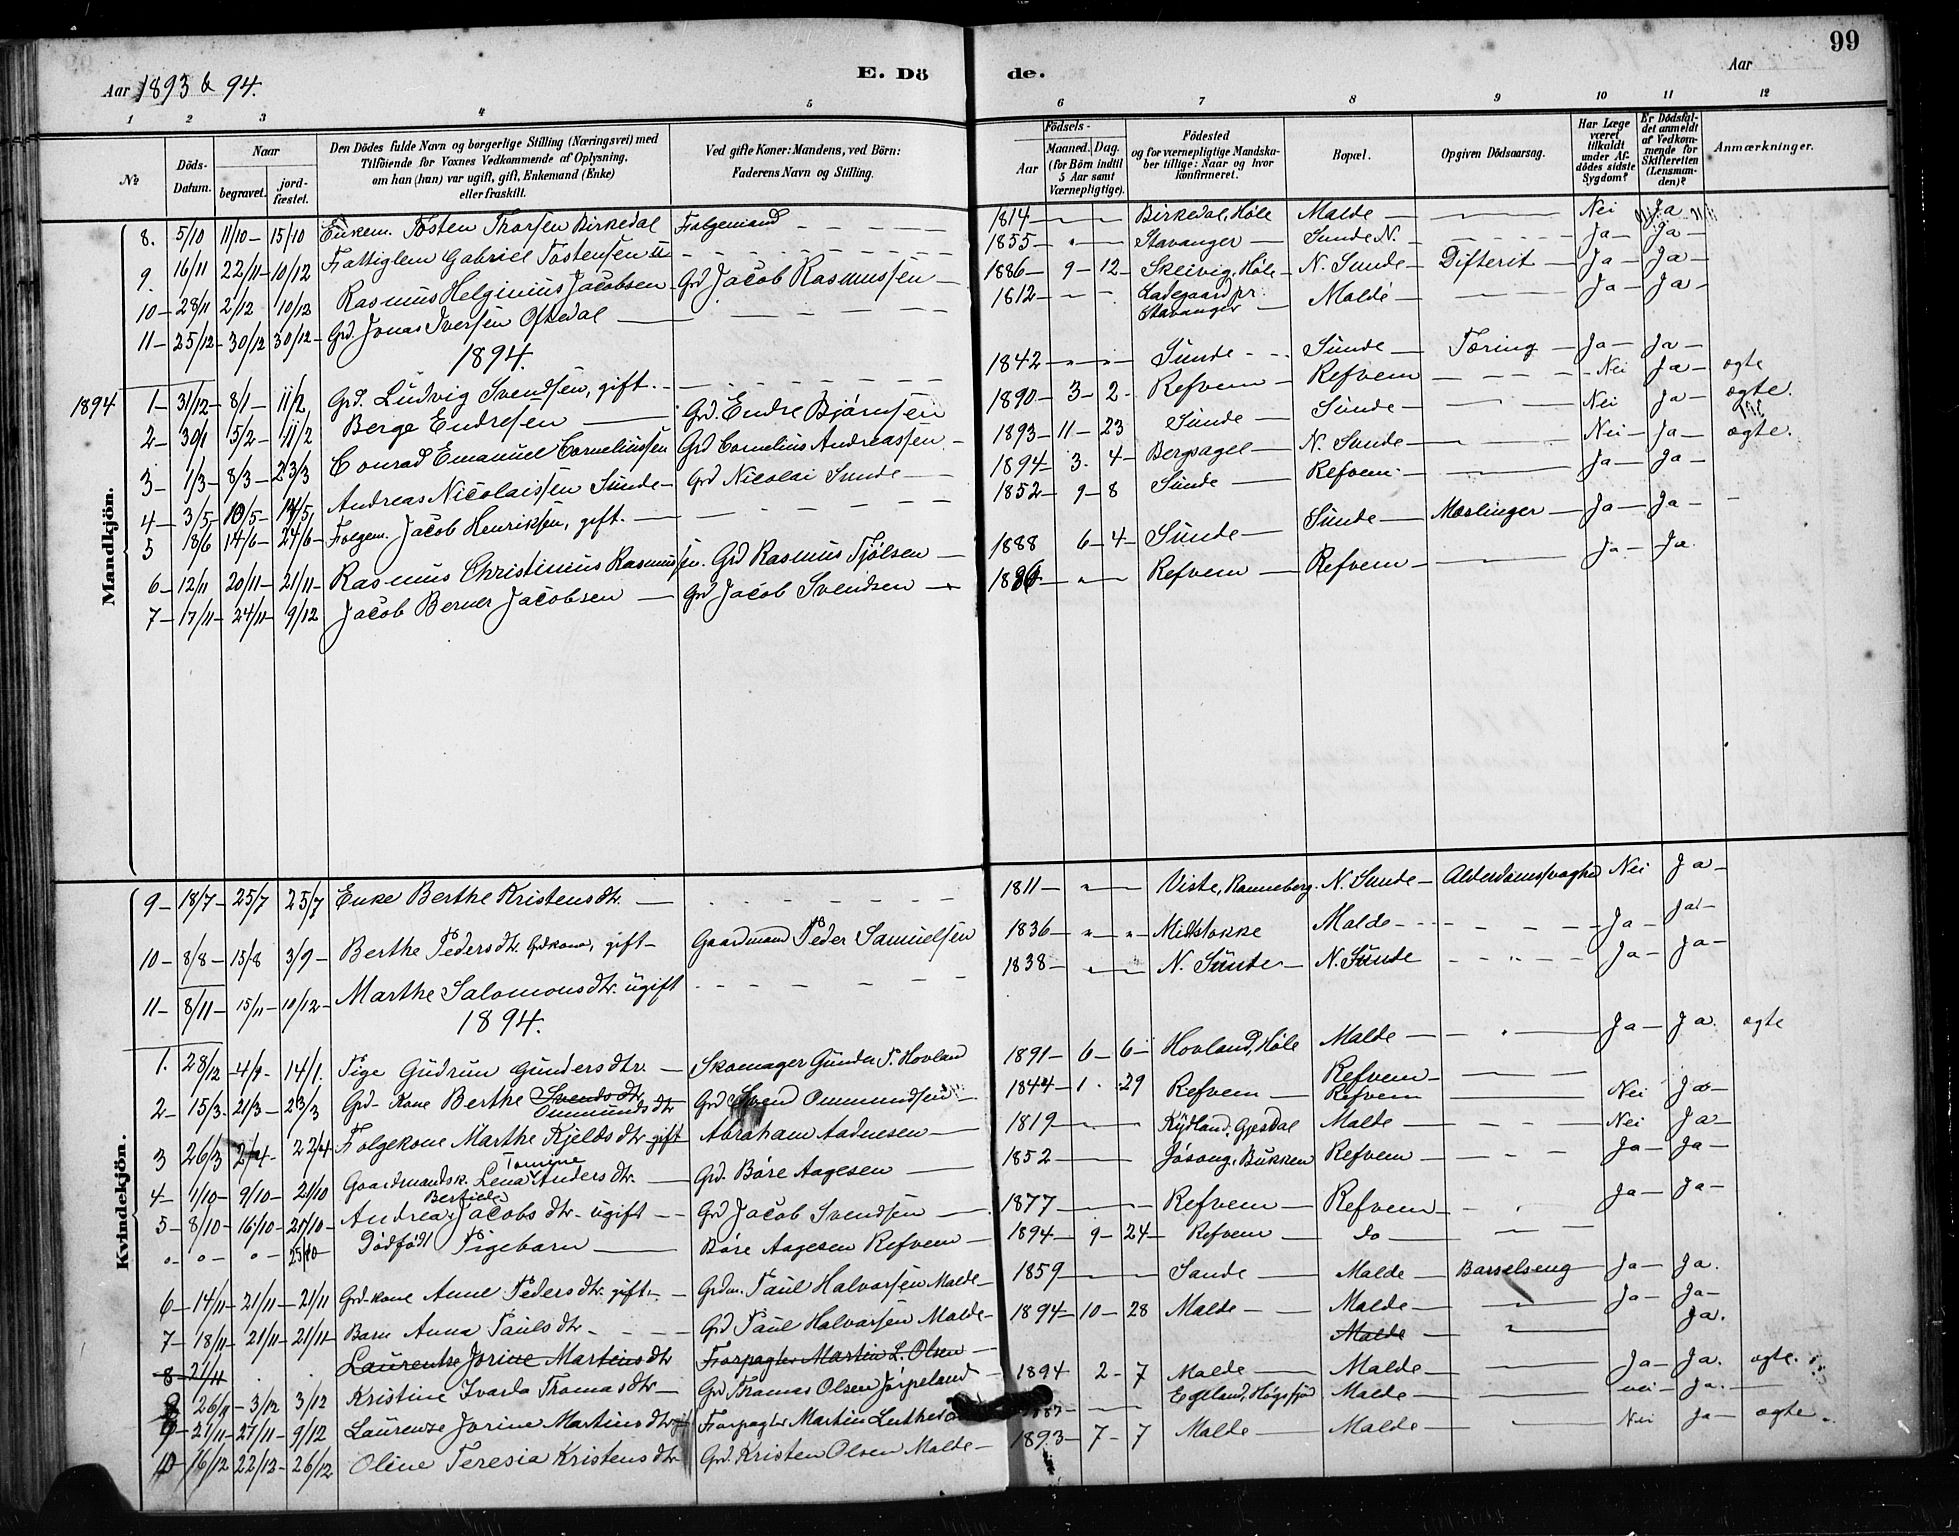 99
Aar 1893 & 94.
E. Dö de.
Aar
1 2 3 4 5 6 7 8 9 10 11 12
№
Döds-Datum.
Naar
begravet.
jordfæstet.
Den Dödes fulde Navn og borgerlige Stilling (Næringsvei) med Tilföiende for Voxnes Vedkommende af Oplysning, om han (hun) var ugift, gift, Enkemand (Enke) eller fraskilt.
Ved gifte Koner: Mandens, ved Börn: Faderens Navn og Stilling.
Födsels-
Aar
Maaned. Dag.
(for Börn indtil 5 Aar samt Værnepligtige).
Födested og for værnepligtige Mandskaber tillige: Naar og hvor konfirmeret.
Bopæl.
Opgiven Dödsaarsag.
Har Læge været tilkaldt under Afdödes sidste Sygdom?
Er Dödsfaldet anmeldt af Vedkommende for Skifteretten (Lensmanden)?
Anmærkninger.
Mandkjön.
8. 5/10 11/10 - 15/10 Enkem. Tosten Thorsen Birkedal Folgemand 1814 Birkedal, Høle Malde Nei Ja
9. 16/11 22/11 - 10/12 Fattiglem Gabriel Tostensen 1855 Stavanger Sunde N. Ja - Ja
10 - 28/11 2/12 10/12 Rasmus Helginius Jacobsen Grd Jacob Rasmussen 1886 - 9 - 12 - Skeivig, Høle N. Sunde Difterit Ja - Ja
11 - 25/12 - 30/12 30/12 - Grd. Jonas Iversen Oftedal 1812 Ladegaard pr. Stavanger Malde Ja - Ja
1894.
1894 1 - 31/12 - 8/1 - 11/2 Grd. Ludvig Svendsen, gift. 1842 Sunde Sunde Tæring Ja - Ja
2 - 30/1 5/2 - 11/2 Berge Endresen Grd. Endre Bjørnsen 1890 - 3 - 2 - Refvem Refvem Nei Ja - ægte
3 - 1/3 - 8/3 - 23/3 Conrad Emanuel Corneliussen Grd Cornelius Andreassen 1893 - 11 - 23 Sunde Sunde Nei Ja - ægte.
4 - 3/5 - 10/5 - 14/5 Andreas Nicolaissen Sunde - Grd Nicolai Sunde 1894 - 3 - 4 - Bergsagel N. Sunde Nei - Ja - ægte.
5 18/6 14/6 - 24/6 - Folgem. Jacob Henriksen, gift. 1852 - 9 - 8 Sunde Refvem Ja - Ja
6 - 12/11 20/11 - 21/11 - Rasmus Christinius Rasmussen. Grd Rasmus Tjølsen 1888 6 - 4 - Sunde Sunde Mæslinger Ja - Ja -
7 - 17/11 - 24/11 - 9/12 Jacob Berner Jacobsen Grd Jacob Svendsen Refvem Refvem Ja - Ja
Kvindekjön.
9 - 18/7 - 25/7 25/7 Enke Berthe Kristensdtr. 1811 Viste, Ranneberg. N. Sunde Alderdomssvaghed Nei Ja -
10 - 8/8 - 15/8 3/9 - Berthe Pedersdtr. Grdkone, gift - Gaardmand Peder Samuelsen 1836 Midstokke Malde Ja - Ja -
11 - 8/11 - 15/11 - 10/12 - Marthe Salomonsdtr. ugift 1838 N. Sunde N. Sunde Ja - Ja -
1894.
1. 28/12 - 4/1 - 14/1. Pige Gudrun Gundersdtr. Skomager Gunder T. Hovland 1891 - 6 - 6 - Hovland, Høle Malde Ja - Ja. ægte
2 - 15/3. 21/3 - 23/3 Grd-Kone Berthe Svendsdtr Ommundsdtr Grd Svend Ommundsen 1844 - 1 - 29 Refvem Refvem Refvem Nei Ja -
3 26/3 2/4 - 22/4 Folgekone Marthe Kjeldsdtr gift Abraham Aadnesen 1819 Kydland, Gjesdal Malde Nei Ja -
4 - 1/10 - 9/10 - 21/10 Gaardmandsk. Lena Tomine Andersdtr. Grd. Bore Aagesen 1852 Jøsang, Bukken Refvem Ja - Ja -
5 - 8/10 - 16/10 - 21/10 - Andrea Bertiele Jacobsdtr - ugift Grd Jacob Svendsen 1877 Refvem Refvem Ja - Ja -
25/10 Dödfödt Pigebarn Bore Aagesen Refvem 1894 - 9 - 24 - Refvem do
6 - 14/11 - 21/11 - 21/11 Grd-kone Anne Pedersdtr. gift. Grdm. Paul Halvorsen Malde 1859 Sande Malde Barselseng Ja - Ja.
7 - 18/11 - 21/11 - 21/11 Barn Anna Paulsdtr Grd Paul Halvorsen Malde 1894 - 10 - 28 Malde Malde Ja - Ja -
8 21/11 Laurentse Jorine Martinsdtr Forpagter Martin L. Olsen Malde Ja.
26/11 - 3/12 3/12 Kristine Ivarda Thomasdtr Grd Thomas Olsen Jørpeland 1894 2 - 7 Malde Malde Ja - Ja. ægte.
9 - 21/11 - 27/11 - 9/12 Laurense Jorine Martinsdtr Forpagter Martin Egeland, Høgsfjord Malde nei - Ja.
10 16/12 22/12 - 26/12 Oline Teresia Kristensdtr Grd. Kristen Olsen Malde 1893 - 7 - 7 Malde Malde Nei Ja - ægte.